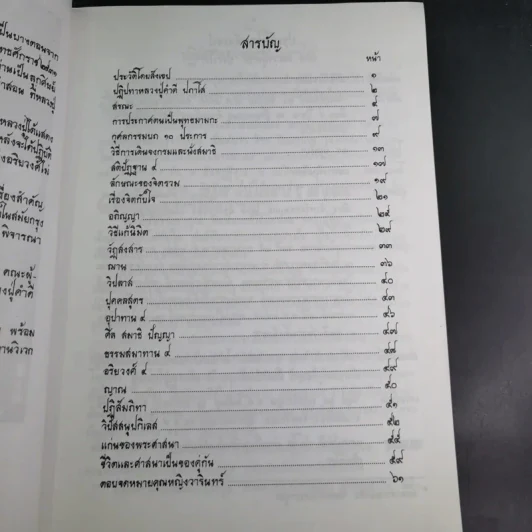 เป็นบางตอนจาก
ท่านเป็นลูกศิษย์
หลวงปู่ได้แสดง
เรื่องสำคัญ
ในสมัยกรุง
พิจารณา
คณะผู้-
พร้อม
สารบัญ
หน้า
ประวัติโดยสังเขป ๑
ปฏิปทาหลวงปู่คำดี ปภาโส ๒
สรณะ
การประกาศตนเป็นพุทธมามกะ
กุศลกรรมบถ ๑๐ ประการ ๙
วิธีการเดินจงกรมและนั่งสมาธิ ๑๓
สติปัฏฐาน ๔ ๑๗
ลักษณะของจิตรวม ๑๙
เรื่องจิตกับใจ ๒๑
อภิญญา ๒๕
วิธีแก้นิมิต ๒๙
วัฏสงสาร ๓๓
ฌาน ๓๖
วิปลาส ๔๐
ปุคคลสูตร ๔๓
อุปาทาน ๔ ๔๖
ศีล สมาธิ ปัญญา ๔๗
ธรรมสมาทาน ๔
อริยวงศ์ ๔ ๔๙
ญาณ ๕๐
ปฏิสัมภิทา ๕๑
วิปัสสนูปกิเลส ๕๒
แก่นของพระศาสนา ๕๕
ชีวิตและศาสนาเป็นของคู่กัน ๕๙
ตอบจดหมายคุณหญิงวารินทร์ ๖๑